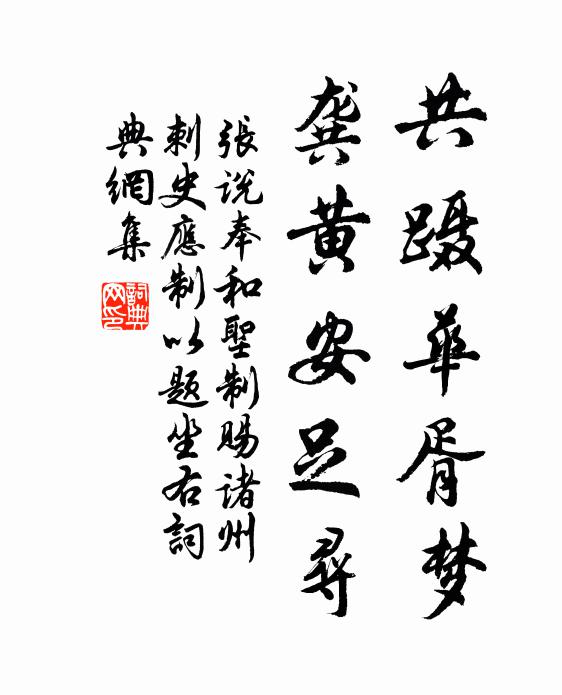 共蹑华胥梦
龚黄安足寻
張说奉和聖制賜诸州
刺史應制以题坐右詞
典網集
詞典网印